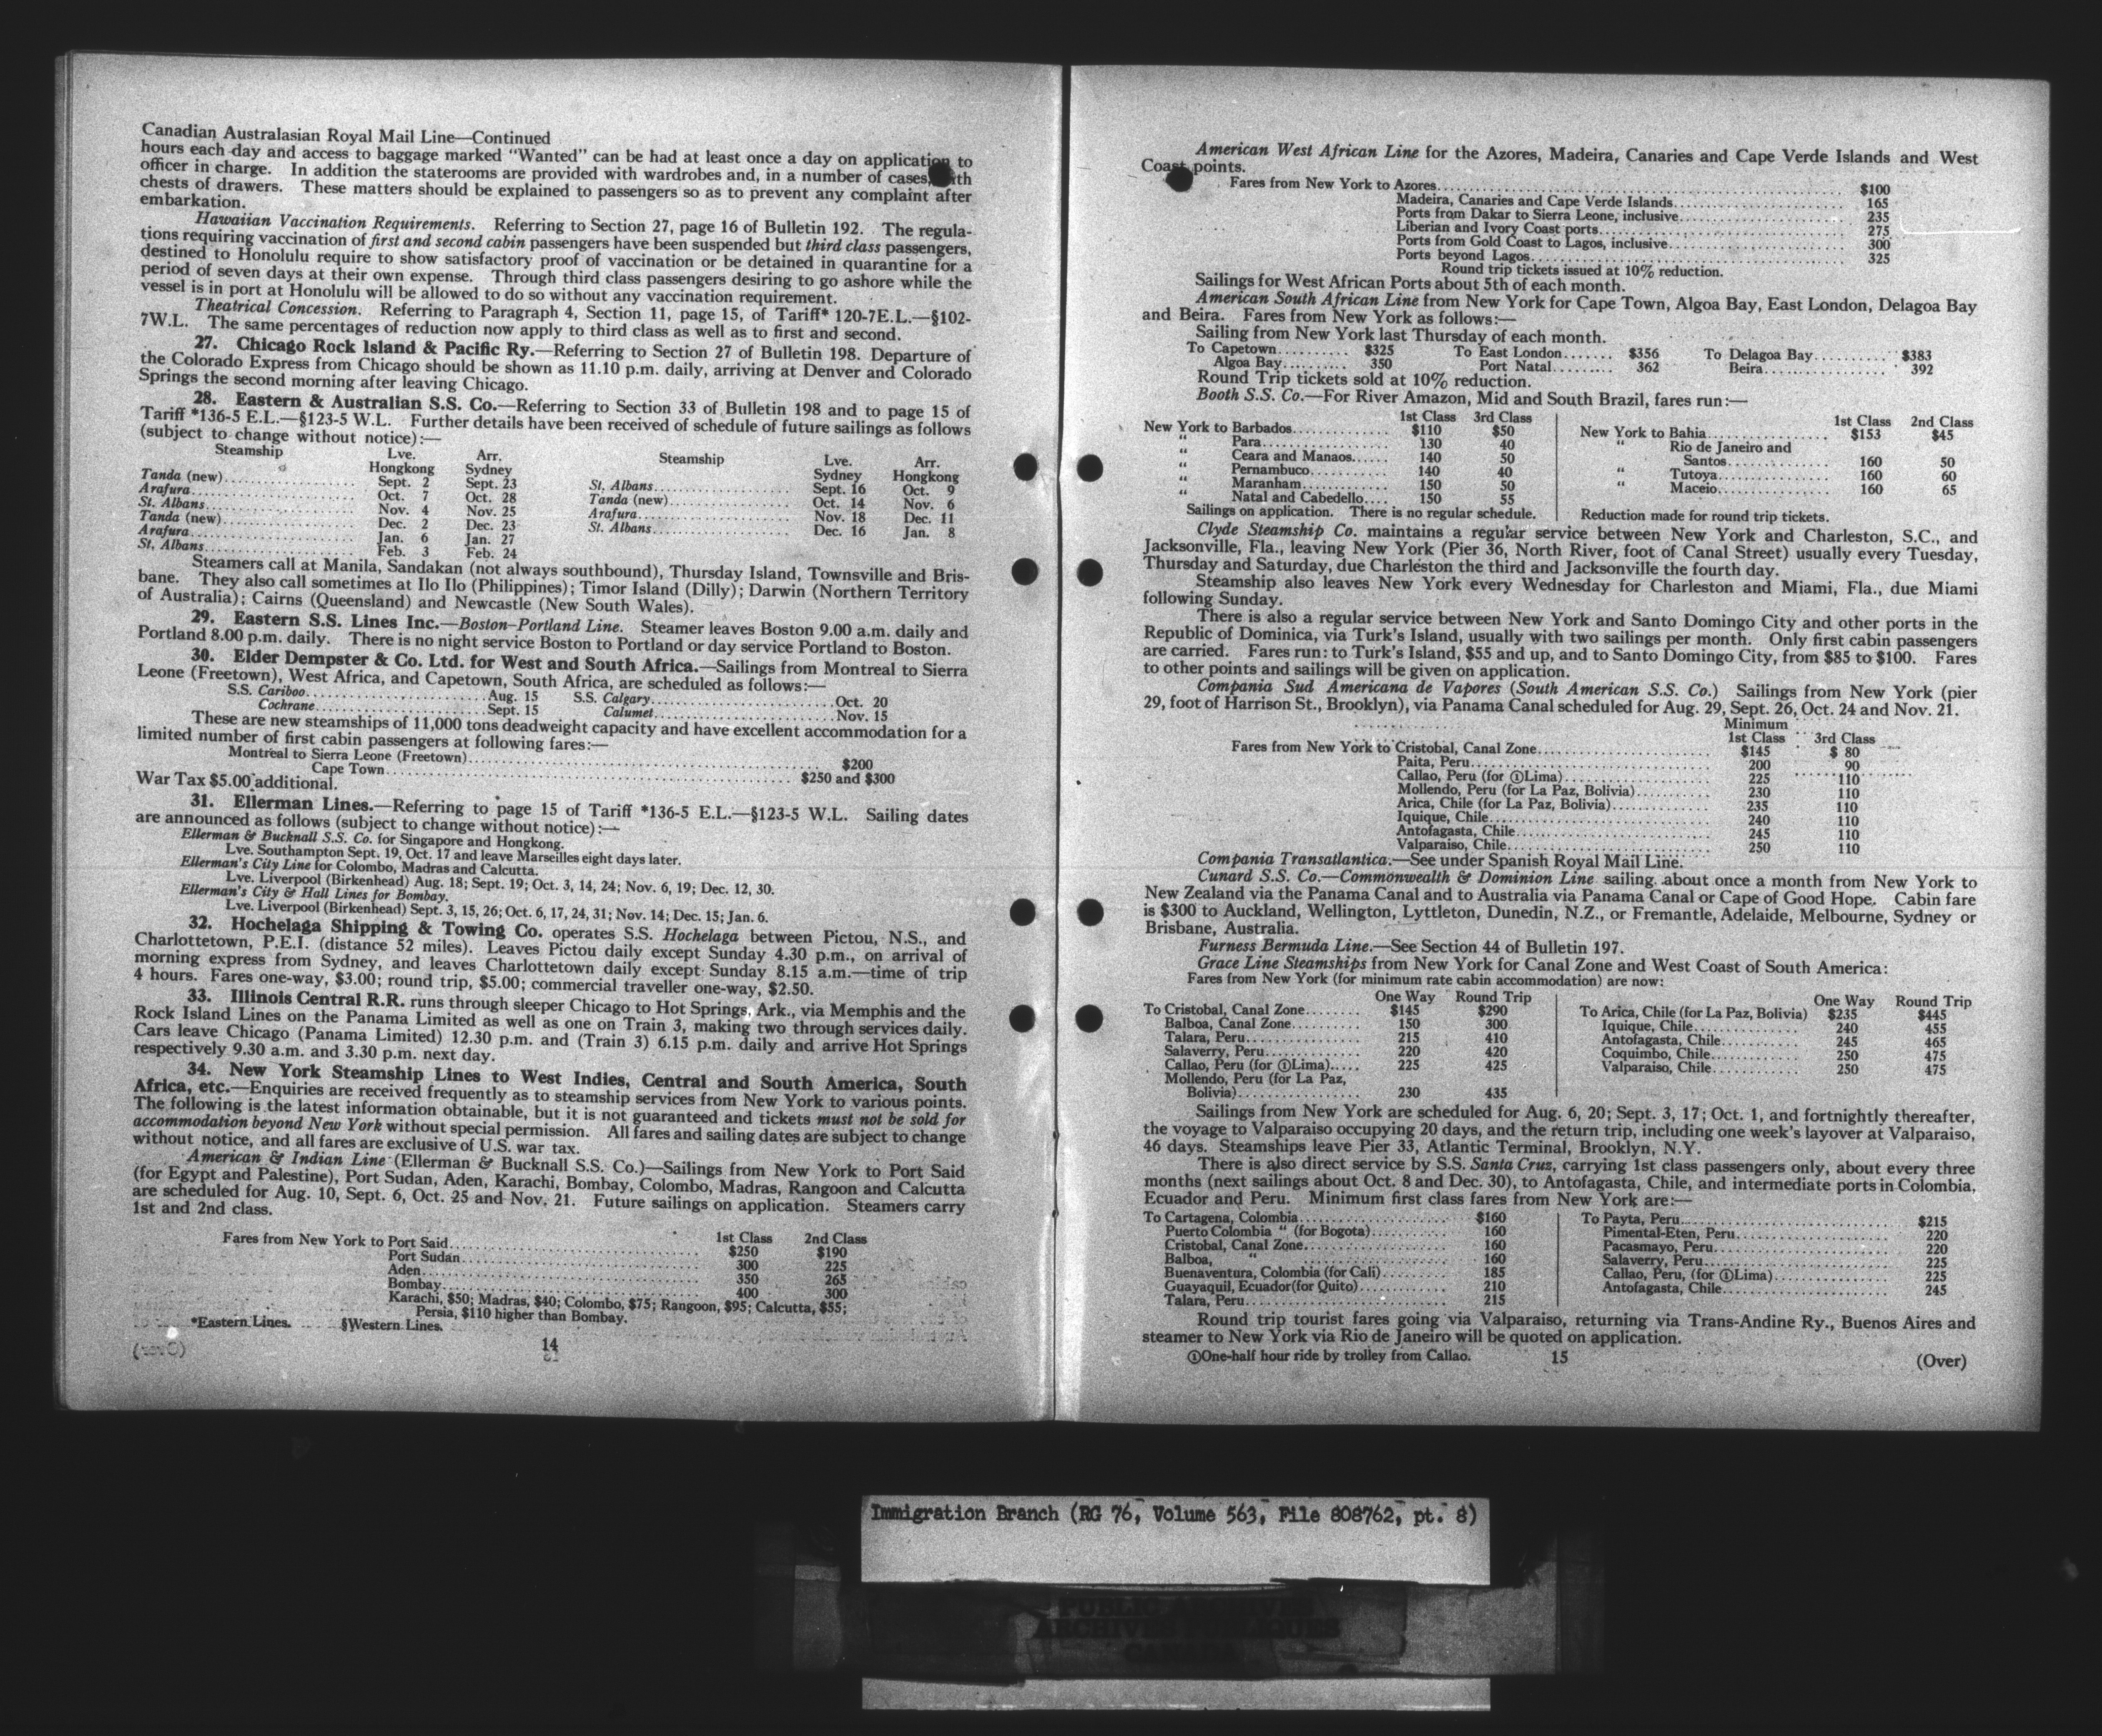 Canadian Australasian Royal Mail Line—Continued
hours each day and access to baggage marked "Wanted" can be had at least once a day on application to
officer in charge. In addition the staterooms are provided with wardrobes and, in a number of cases,
chests of drawers. These matters should be explained to passengers so as to prevent any complaint after
embarkation.
Hawaiian Vaccination Requirements. Referring to Section 27, page 16 of Bulletin 192. The regula-
tions requiring vaccination of first and second cabin passengers have been suspended but third class passengers,
destined to Honolulu require to show satisfactory proof of vaccination or be detained in quarantine for a
period of seven days at their own expense. Through third class passengers desiring to go ashore while the
vessel is in port at Honolulu will be allowed to do so without any vaccination requirement.
Theatrical Concession. Referring to Paragraph 4, Section 11, page 15, of Tariff* 120-7E.L.—§102-
7W.L. The same percentages of reduction now apply to third class as well as to first and second.
27. Chicago Rock Island & Pacific Ry.—Referring to Section 27 of Bulletin 198. Departure of
the Colorado Express from Chicago should be shown as 11.10 p.m. daily, arriving at Denver and Colorado
Springs the second morning after leaving Chicago.
28. Eastern & Australian S.S. Co.—Referring to Section 33 of Bulletin 198 and to page 15 of
Tariff *136-5 E.L.—§123-5 W.L. Further details have been received of schedule of future sailings as follows
(subject to change without notice):—
Steamship Lve. Arr. Steamship Lve. Arr.
Hongkong Sydney Sydney Hongkong
Tanda (new) Sept. 2 Sept. 23 St. Albans Sept. 16 Oct. 9
Arafura Oct. 7 Oct. 28 Tanda (new) Oct. 14 Nov. 6
St. Albans Nov. 4 Nov. 25 Arafura Nov. 18 Dec. 11
Tanda (new) Dec. 2 Dec. 23 St. Albans Dec. 16 Jan. 8
Arafura Jan. 6 Jan. 27
St. Albans Feb. 3 Feb. 24
Steamers call at Manila, Sandakan (not always southbound), Thursday Island, Townsville and Bris-
bane. They also call sometimes at Ilo Ilo (Philippines); Timor Island (Dilly); Darwin (Northern Territory
of Australia); Cairns (Queensland) and Newcastle (New South Wales).
29. Eastern S.S. Lines Inc.—Boston-Portland Line. Steamer leaves Boston 9.00 a.m. daily and
Portland 8.00 p.m. daily. There is no night service Boston to Portland or day service Portland to Boston.
30. Elder Dempster & Co. Ltd. for West and South Africa.—Sailings from Montreal to Sierra
Leone (Freetown), West Africa, and Capetown, South Africa, are scheduled as follows:—
S.S. Cariboo Aug. 15 S.S. Calgary Oct. 20
Cochrane Sept. 15 Calumet Nov. 15
These are new steamships of 11,000 tons deadweight capacity and have excellent accommodation for a
limited number of first cabin passengers at following fares:—
Montreal to Sierra Leone (Freetown) $200
Cape Town $250 and $300
War Tax $5.00 additional.
31. Ellerman Lines.—Referring to page 15 of Tariff *136-5 E.L.—§123-5 W.L. Sailing dates
are announced as follows (subject to change without notice):—
Ellerman & Bucknall S.S. Co. for Singapore and Hongkong.
Lve. Southampton Sept. 19, Oct. 17 and leave Marseilles eight days later.
Ellerman's City Line for Colombo, Madras and Calcutta.
Lve. Liverpool (Birkenhead) Aug. 18; Sept. 19; Oct. 3, 14, 24; Nov. 6, 19; Dec. 12, 30.
Ellerman's City & Hall Lines for Bombay.
Lve. Liverpool (Birkenhead) Sept. 3, 15, 26; Oct. 6, 17, 24, 31; Nov. 14; Dec. 15; Jan. 6.
32. Hochelaga Shipping & Towing Co. operates S.S. Hochelaga between Pictou, N.S., and
Charlottetown, P.E.I. (distance 52 miles). Leaves Pictou daily except Sunday 4.30 p.m., on arrival of
morning express from Sydney, and leaves Charlottetown daily except Sunday 8.15 a.m.—time of trip
4 hours. Fares one-way, $3.00; round trip, $5.00; commercial traveller one-way, $2.50.
33. Illinois Central R.R. runs through sleeper Chicago to Hot Springs, Ark., via Memphis and the
Rock Island Lines on the Panama Limited as well as one on Train 3, making two through services daily.
Cars leave Chicago (Panama Limited) 12.30 p.m. and (Train 3) 6.15 p.m. daily and arrive Hot Springs
respectively 9.30 a.m. and 3.30 p.m. next day.
34. New York Steamship Lines to West Indies, Central and South America, South
Africa, etc.—Enquiries are received frequently as to steamship services from New York to various points.
The following is the latest information obtainable, but it is not guaranteed and tickets must not be sold for
accommodation beyond New York without special permission. All fares and sailing dates are subject to change
without notice, and all fares are exclusive of U.S. war tax.
American & Indian Line (Ellerman & Bucknall S.S. Co.)—Sailings from New York to Port Said
(for Egypt and Palestine), Port Sudan, Aden, Karachi, Bombay, Colombo, Madras, Rangoon and Calcutta
are scheduled for Aug. 10, Sept. 6, Oct. 25 and Nov. 21. Future sailings on application. Steamers carry
1st and 2nd class.
1st Class 2nd Class
Fares from New York to Port Said $250 $190
Port Sudan 300 225
Aden 350 265
Bombay 400 300
Karachi, $50; Madras, $40; Colombo, $75; Rangoon, $95; Calcutta, $55;
Persia, $110 higher than Bombay.
*Eastern Lines. §Western Lines.
14
American West African Line for the Azores, Madeira, Canaries and Cape Verde Islands and West
Coast points.
Fares from New York to Azores $100
Madeira, Canaries and Cape Verde Islands 165
Ports from Dakar to Sierra Leone, inclusive 235
Liberian and Ivory Coast ports 275
Ports from Gold Coast to Lagos, inclusive 300
Ports beyond Lagos 325
Round trip tickets issued at 10% reduction.
Sailings for West African Ports about 5th of each month.
American South African Line from New York for Cape Town, Algoa Bay, East London, Delagoa Bay
and Beira. Fares from New York as follows:—
Sailing from New York last Thursday of each month.
To Capetown $325 To East London $356 To Delagoa Bay $383
Algoa Bay 350 Port Natal 362 Beira 392
Round Trip tickets sold at 10% reduction.
Booth S.S. Co.—For River Amazon, Mid and South Brazil, fares run:—
1st Class 3rd Class
New York to Barbados $110 $50
" Para 130 40
" Ceara and Manaos 140 50
" Pernambuco 140 40
" Maranham 150 50
" Natal and Cabedello 150 55
Sailings on application. There is no regular schedule.
1st Class 2nd Class
New York to Bahia $153 $45
" Rio de Janeiro and
Santos 160 50
" Tutoya 160 60
" Maceio 160 65
Reduction made for round trip tickets.
Clyde Steamship Co. maintains a regular service between New York and Charleston, S.C., and
Jacksonville, Fla., leaving New York (Pier 36, North River, foot of Canal Street) usually every Tuesday,
Thursday and Saturday, due Charleston the third and Jacksonville the fourth day.
Steamship also leaves New York every Wednesday for Charleston and Miami, Fla., due Miami
following Sunday.
There is also a regular service between New York and Santo Domingo City and other ports in the
Republic of Dominica, via Turk's Island, usually with two sailings per month. Only first cabin passengers
are carried. Fares run: to Turk's Island, $55 and up, and to Santo Domingo City, from $85 to $100. Fares
to other points and sailings will be given on application.
Compania Sud Americana de Vapores (South American S.S. Co.) Sailings from New York (pier
29, foot of Harrison St., Brooklyn), via Panama Canal scheduled for Aug. 29, Sept. 26, Oct. 24 and Nov. 21.
Minimum
1st Class 3rd Class
Fares from New York to Cristobal, Canal Zone $145 $ 80
Paita, Peru 200 90
Callao, Peru (for ①Lima) 225 110
Mollendo, Peru (for La Paz, Bolivia) 230 110
Arica, Chile (for La Paz, Bolivia) 235 110
Iquique, Chile 240 110
Antofagasta, Chile 245 110
Valparaiso, Chile 250 110
Compania Transatlantica.—See under Spanish Royal Mail Line.
Cunard S.S. Co.—Commonwealth & Dominion Line sailing about once a month from New York to
New Zealand via the Panama Canal and to Australia via Panama Canal or Cape of Good Hope. Cabin fare
is $300 to Auckland, Wellington, Lyttleton, Dunedin, N.Z., or Fremantle, Adelaide, Melbourne, Sydney or
Brisbane, Australia.
Furness Bermuda Line.—See Section 44 of Bulletin 197.
Grace Line Steamships from New York for Canal Zone and West Coast of South America:
Fares from New York (for minimum rate cabin accommodation) are now:
One Way Round Trip
To Cristobal, Canal Zone $145 $290
Balboa, Canal Zone 150 300
Talara, Peru 215 410
Salaverry, Peru 220 420
Callao, Peru (for ①Lima) 225 425
Mollendo, Peru (for La Paz,
Bolivia) 230 435
One Way Round Trip
To Arica, Chile (for La Paz, Bolivia) $235 $445
Iquique, Chile 240 455
Antofagasta, Chile 245 465
Coquimbo, Chile 250 475
Valparaiso, Chile 250 475
Sailings from New York are scheduled for Aug. 6, 20; Sept. 3, 17; Oct. 1, and fortnightly thereafter,
the voyage to Valparaiso occupying 20 days, and the return trip, including one week's layover at Valparaiso,
46 days. Steamships leave Pier 33, Atlantic Terminal, Brooklyn, N.Y.
There is also direct service by S.S. Santa Cruz, carrying 1st class passengers only, about every three
months (next sailings about Oct. 8 and Dec. 30), to Antofagasta, Chile, and intermediate ports in Colombia,
Ecuador and Peru. Minimum first class fares from New York are:—
To Cartagena, Colombia $160
Puerto Colombia " (for Bogota) 160
Cristobal, Canal Zone 160
Balboa, " 160
Buenaventura, Colombia (for Cali) 185
Guayaquil, Ecuador(for Quito) 210
Talara, Peru 215
To Payta, Peru $215
Pimental-Eten, Peru 220
Pacasmayo, Peru 220
Salaverry, Peru 225
Callao, Peru, (for ①Lima) 225
Antofagasta, Chile 245
Round trip tourist fares going via Valparaiso, returning via Trans-Andine Ry., Buenos Aires and
steamer to New York via Rio de Janeiro will be quoted on application.
①One-half hour ride by trolley from Callao.
15
(Over)
Immigration Branch (RG 76, Volume 563, File 808762, pt. 8)
PUBLIC ARCHIVES
ARCHIVES PUBLIQUES
CANADA